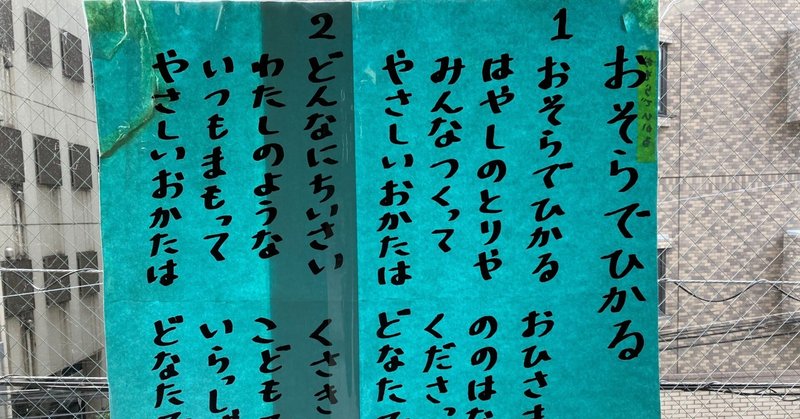 おそらでひかる
1 おそらでひかる おひさま
はやしのとりや ののはな
みんなつくって くださっ
やさしいおかたは どなた
2 どんなにちいさい くさき
わたしのような こども
いつもまもって いらっし
やさしいおかたは どなた